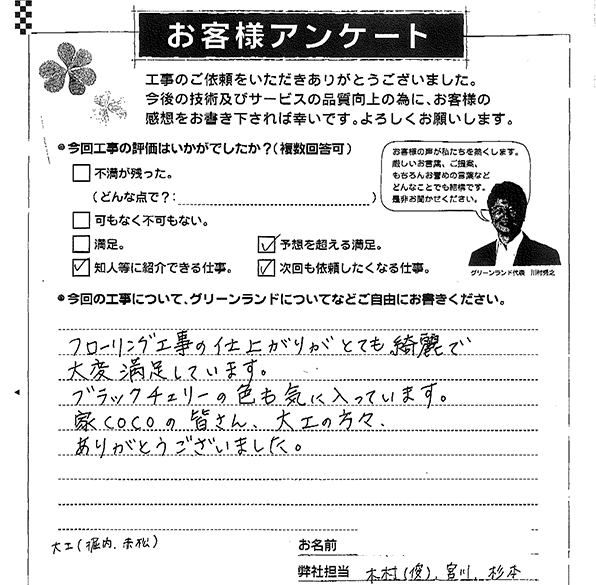 お客様アンケート
工事のご依頼をいただきありがとうございました。
今後の技術及びサービスの品質向上の為に、お客様の
感想をお書き下されば幸いです。よろしくお願いします。
●今回工事の評価はいかがでしたか？（複数回答可）
不満が残った。
（どんな点で？： ）
可もなく不可もない。
満足。
予想を超える満足。
知人等に紹介できる仕事。
次回も依頼したくなる仕事。
お客様の声が私たちを熱くします。
厳しいお言葉、ご提案、
もちろんお誉めの言葉など
どんなことでも結構です。
是非お聞かせください。
グリーンランド代表 川村秀之
●今回の工事について、グリーンランドについてなどご自由にお書きください。
フローリング工事の仕上がりがとても綺麗で
大変満足しています。
ブラックチェリーの色も気に入っています。
家COCOの皆さん、大工の方々、
ありがとうございました。
大工(堀内、赤松)
お名前
弊社担当 木村(俊)、宮川、杉本